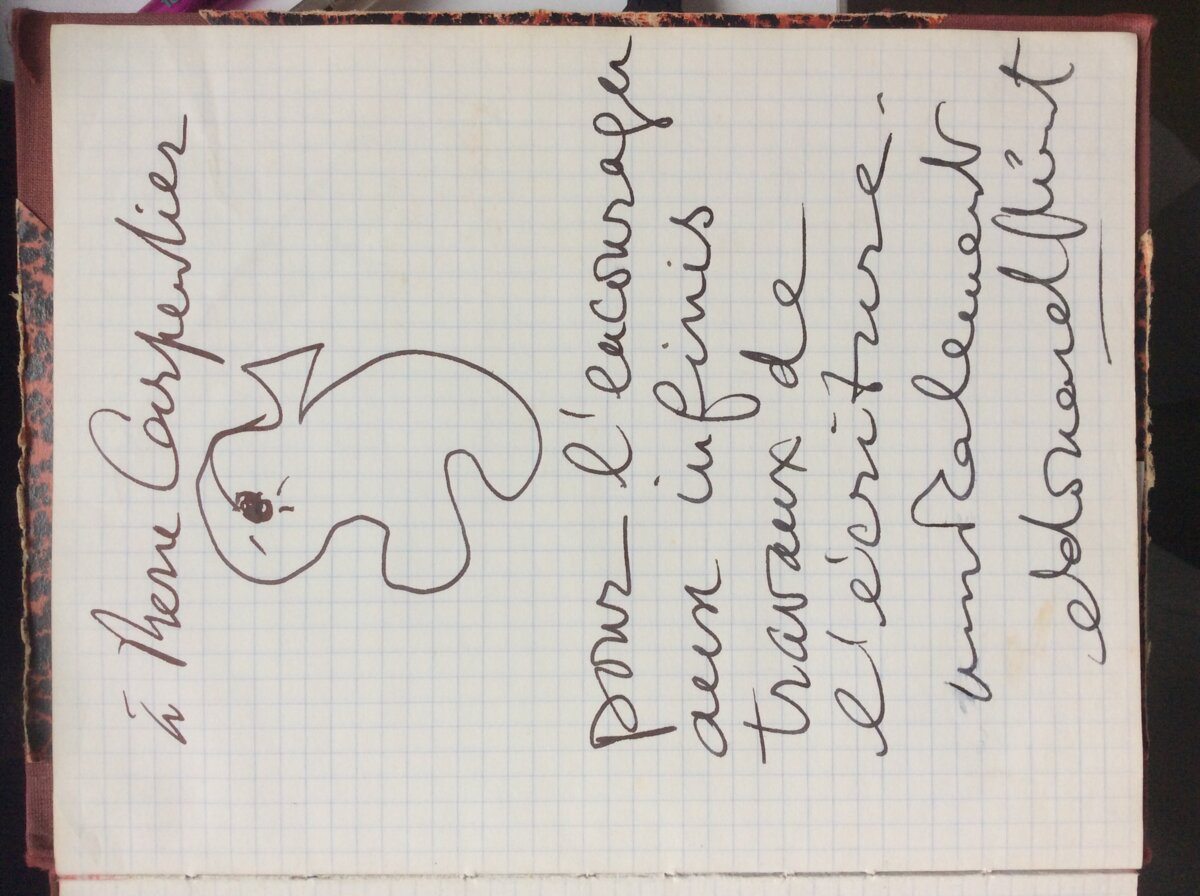 à Pierre Carpentier
pour l'encourager
aux infinis
travaux de
l'écriture.
amicalement